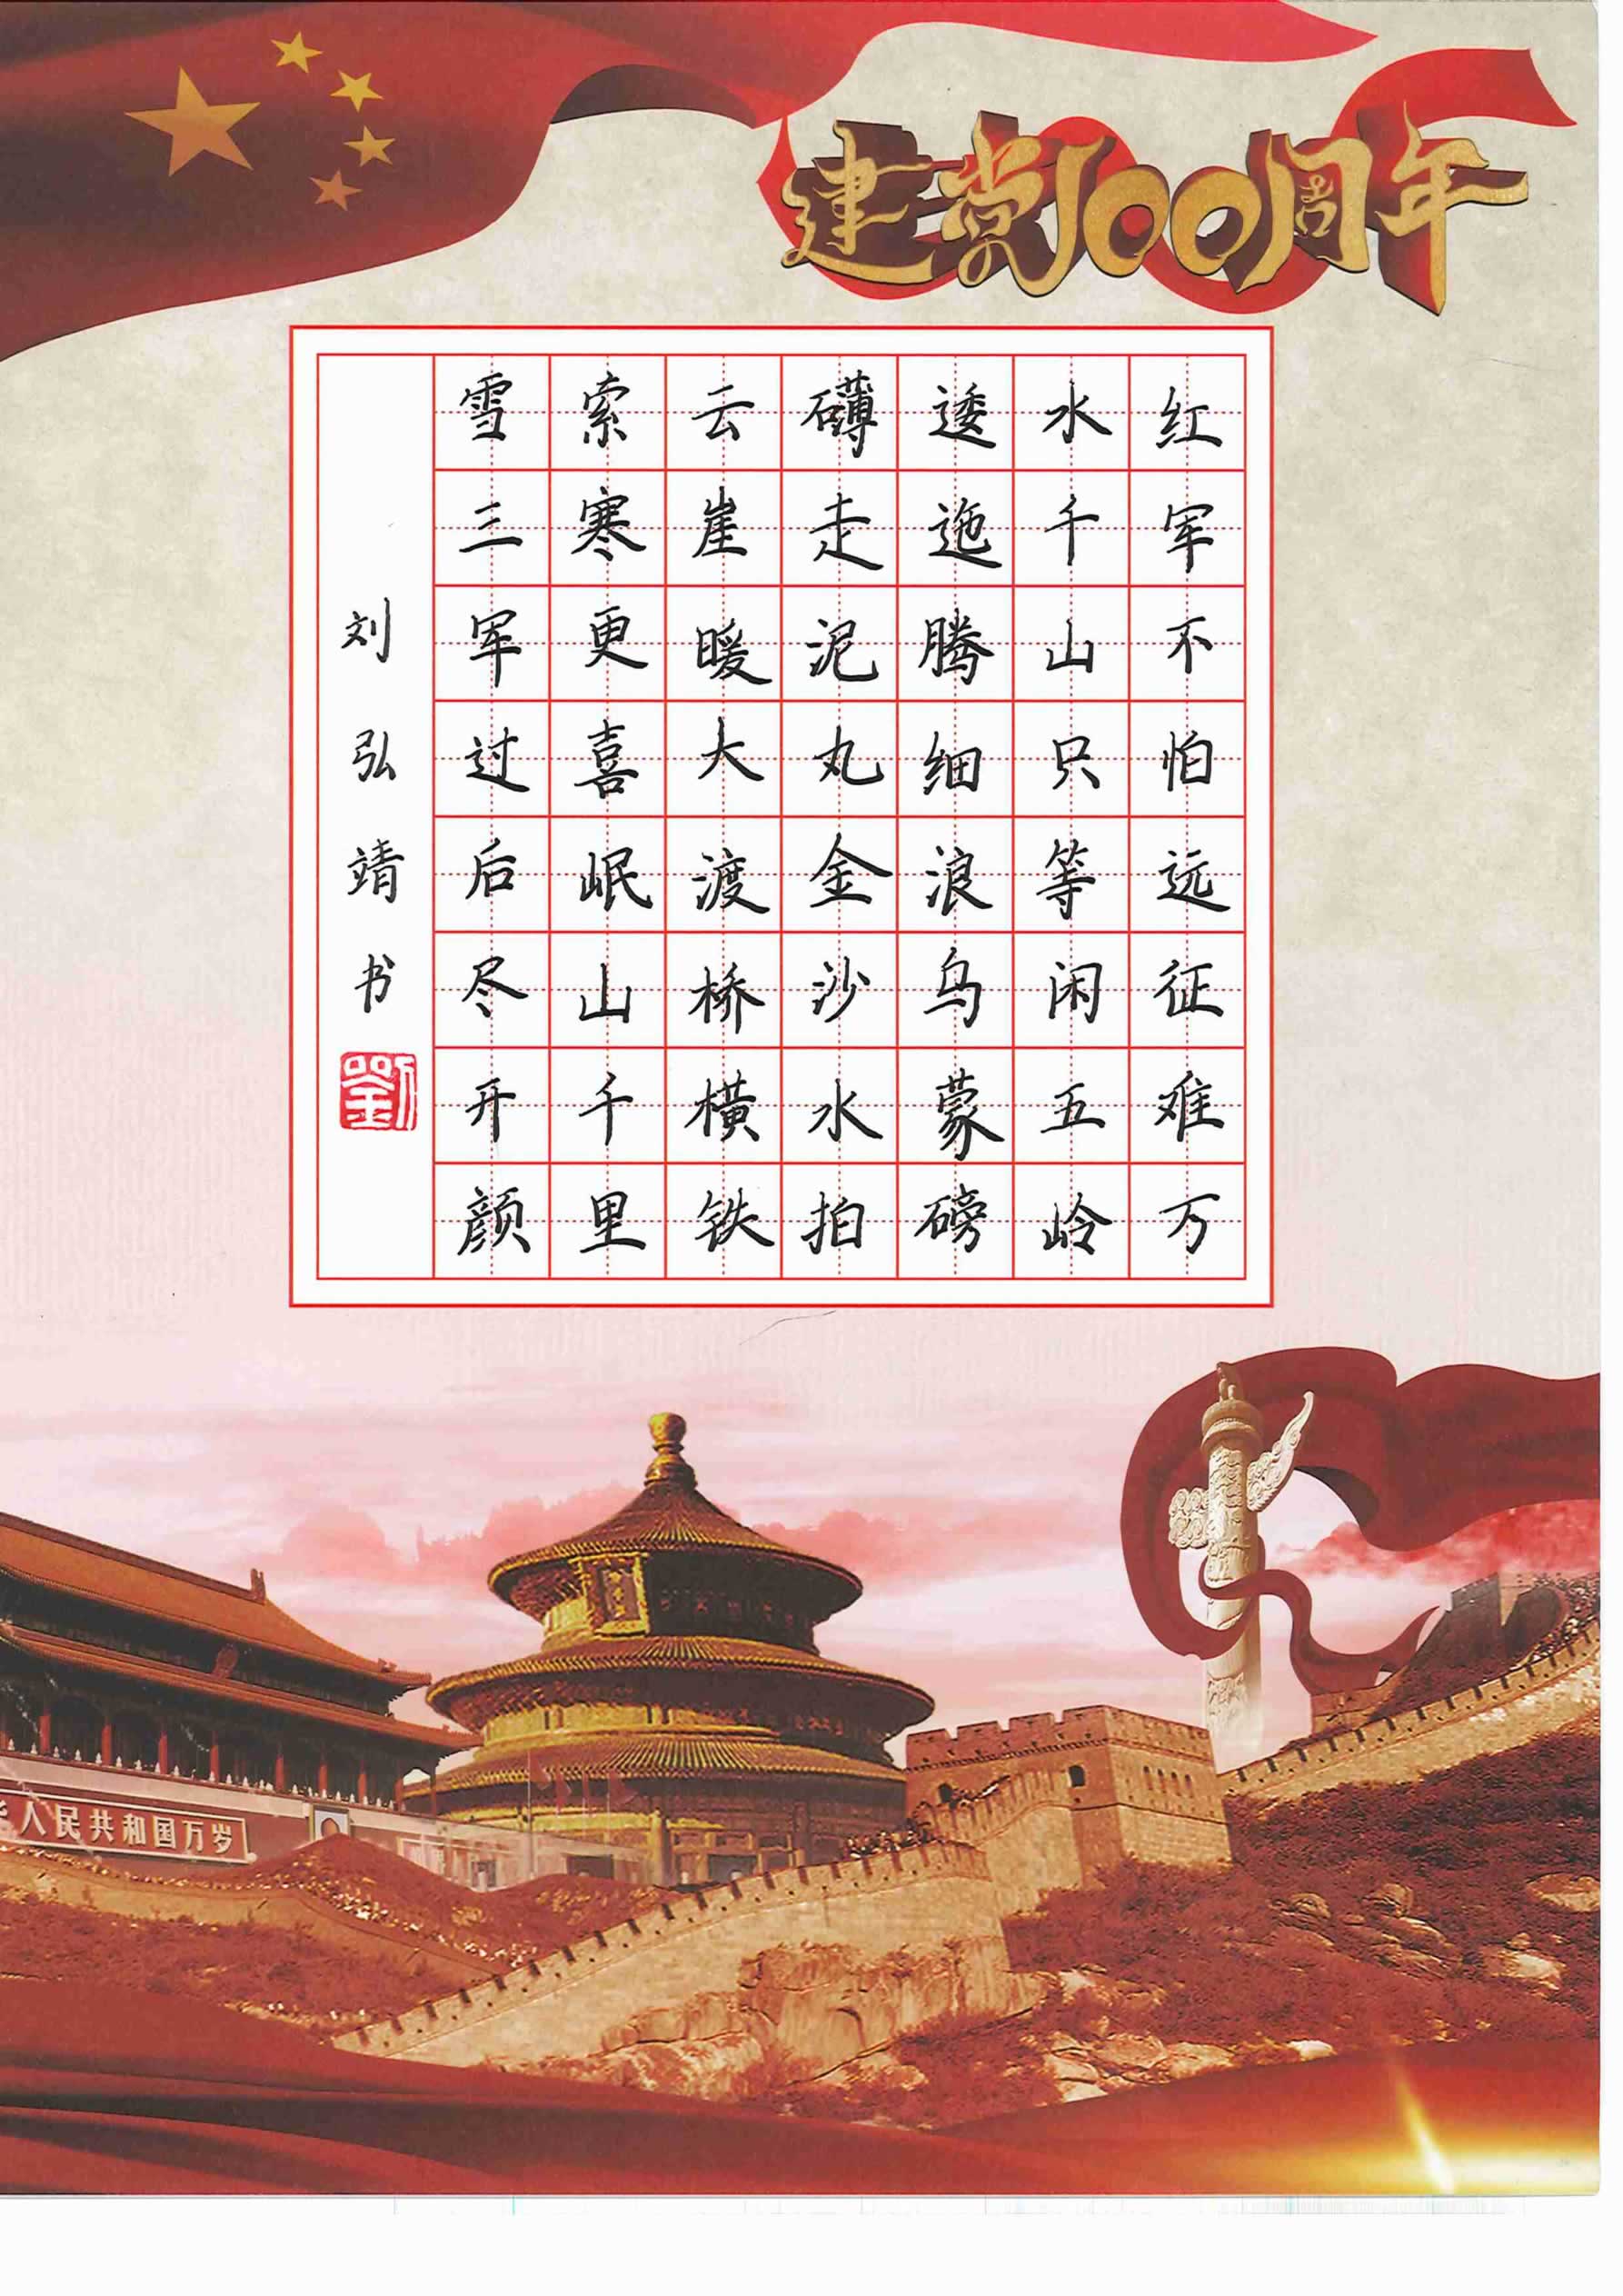 建党100周年
红军不怕远征难万
水千山只等闲五岭
逶迤腾细浪乌蒙磅
礴走泥丸金沙水拍
云崖暖大渡桥横铁
索寒更喜岷山千里
雪三军过后尽开颜
刘弘靖书
劉
人民共和国万岁